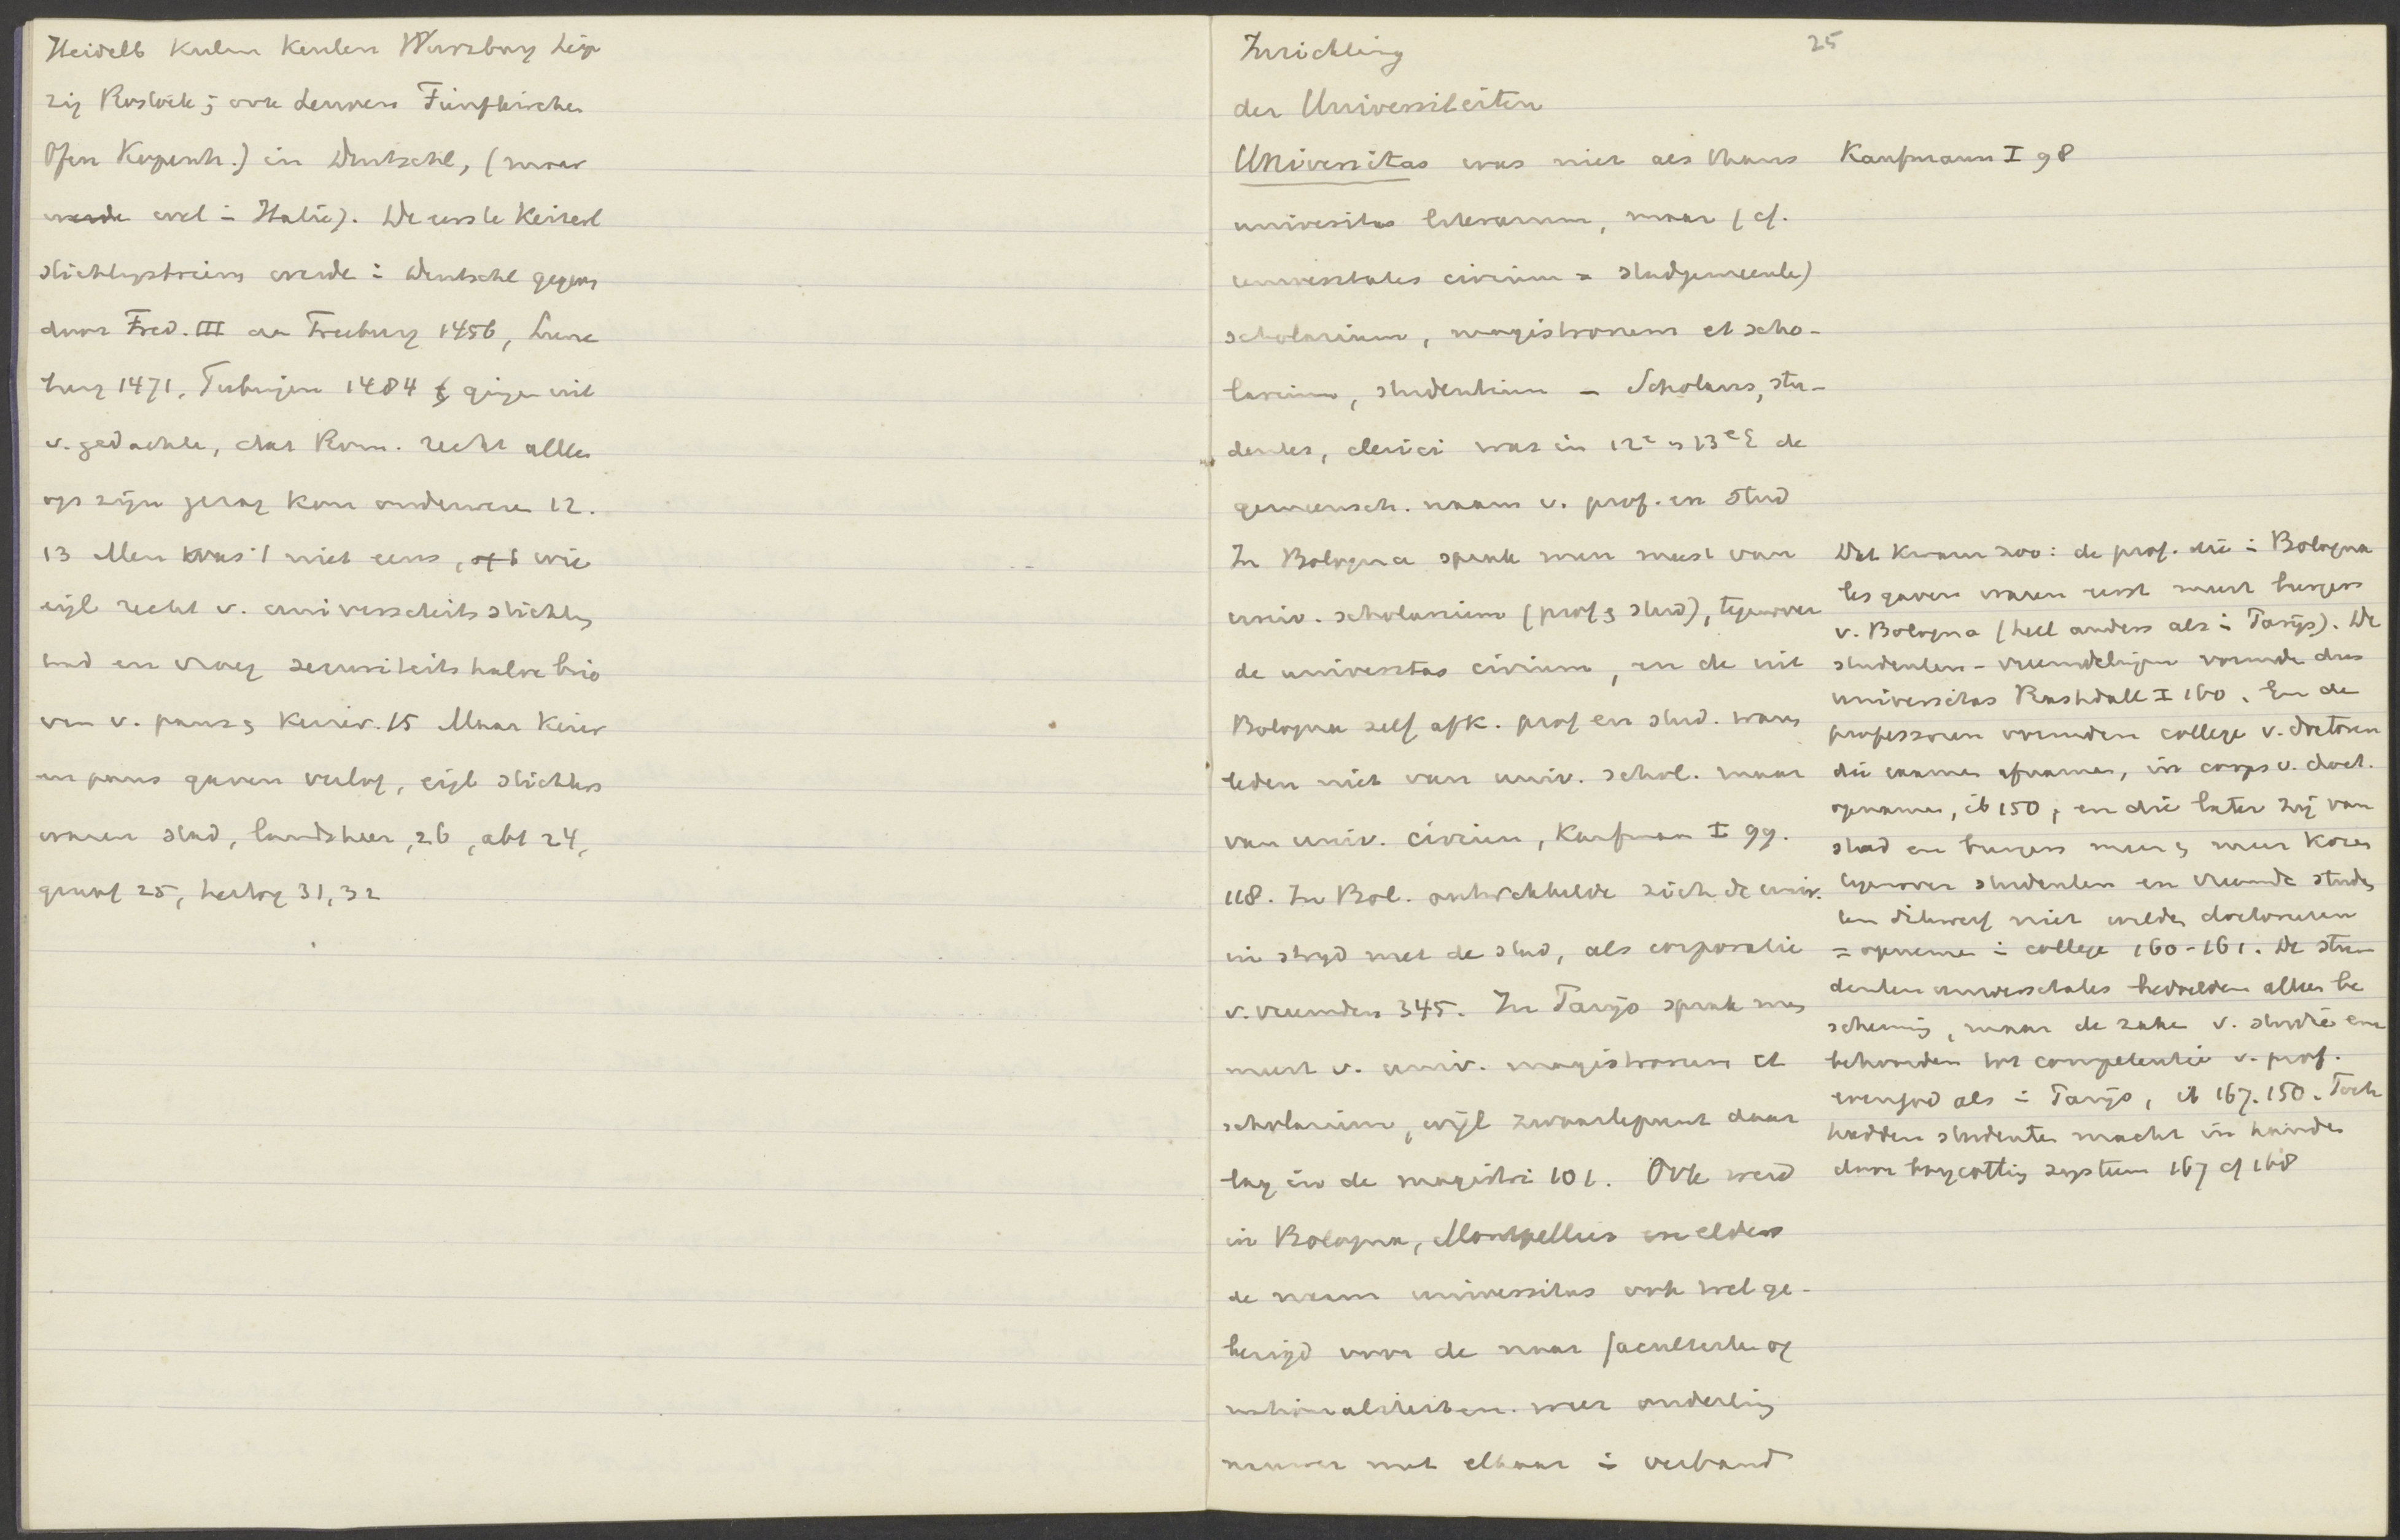 Heidelb Kulm Keulen Wurzburg Leip
zig Rostock; ook Leuven Fünfkirchen
Ofen Kopenh.) in Duitschl, (maar
werde wel in Italië). De eerste Keizerl
stichtingsbrieven werde in Duitschl gegeven
door Fred. III aan Freiburg 1456, Lune
burg 1471, Tubingen 1484 & gingen uit
v. gedachte, dat Rom. recht alleen
op zijn gezag kon onderwezen 12.
13 Men was 't niet eens, wie
eigl recht v. universiteits stichting
had en vroeg securiteitshalve brie
ven v. paus & Keizer. 15 Maar Keizer
en paus gaven verlof, eigl stichters
waren stad, landsheer, 26, abt 24,
graaf 25, hertog 31, 32
25
Inrichting
der Universiteiten
Universitas was niet als thans
universitas literarum, maar (cf.
universitates civium = stadgemeente)
scholarium, magistrorum et scho-
larium, studentium - Scholares, stu-
dentes, clerici was in 12e en 13e E de
gemeensch. naam v. prof. en stud
In Bologna sprak men meest van
univ. scholarium (prof & stud), tegenover
de universitas civium, en de uit
Bologna zelf afk. prof en stud. waren
leden niet van univ. schol. maar
van univ. civium, Kaufman I 99.
118. In Bol. ontwikkelde zich de univ.
in strijd met de stad, als corporatie
v. vreemden 345. In Parijs sprak men
meest v. univ. magistrorum et
scholarium, wijl zwaartepunt daar
lag in de magistri 101. Ook werd
in Bologna, Montpellier en elders
de naam universitas ook wel ge-
bezigd voor de naar faculteiten of
nationaliteiten. weer onderling
nauwer met elkaar in verband
Kaufmann I 98
Dat kwam zoo: de prof. die in Bologna
les gaven waren eerst meest burgers
v. Bologna (heel anders als in Parijs). De
studenten - vreemdelingen vormde dus
universitas Rashdall I 160. En de
professoren vormden college v. doctoren
die examen afnamen, in corps v. doct.
opnamen, ib 150, en die later zij van
stad en burgers meer & meer kozen
tegenover studenten en vreemde studen
ten dikwerf niet wilden doctoreren
= opnemen in college 160-161. De stu
denten universitates bedoelden alleen be
scherming, maar de zaken v. studie enz
behoorden tot competentie v. prof.
evengoed als in Parijs, ib 167. 150. Toch
hadden studenten macht in handen
door boycotting systeem 167 cf 168